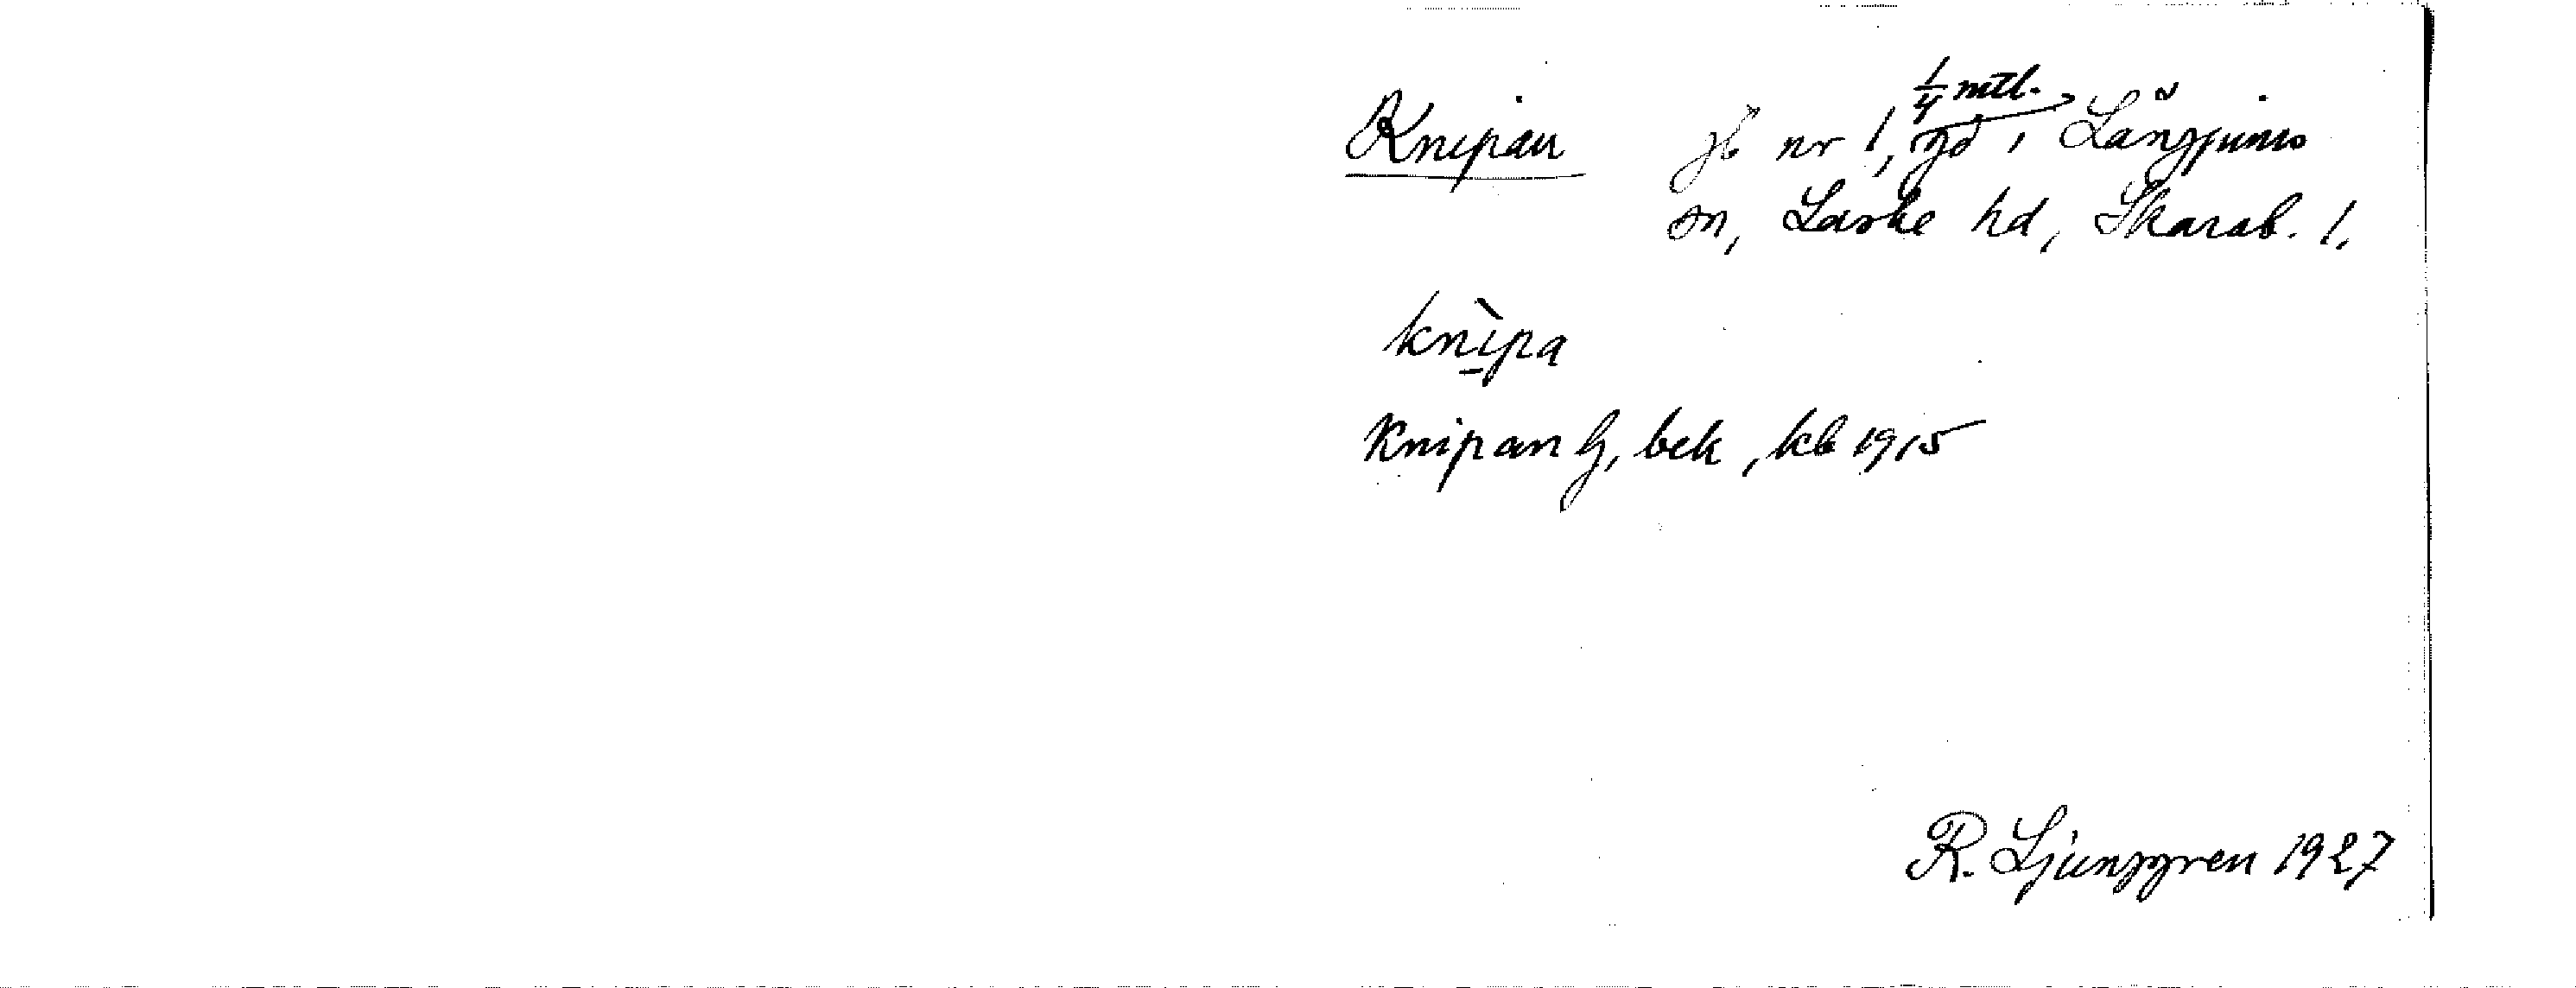 Knipan jb nr 1, 1/4 mtl. gd i Långjums
sn, Laske hd, Skarab. l.
knìpa
Knipan G, bek, kb 1915
R. Ljunggren 1927